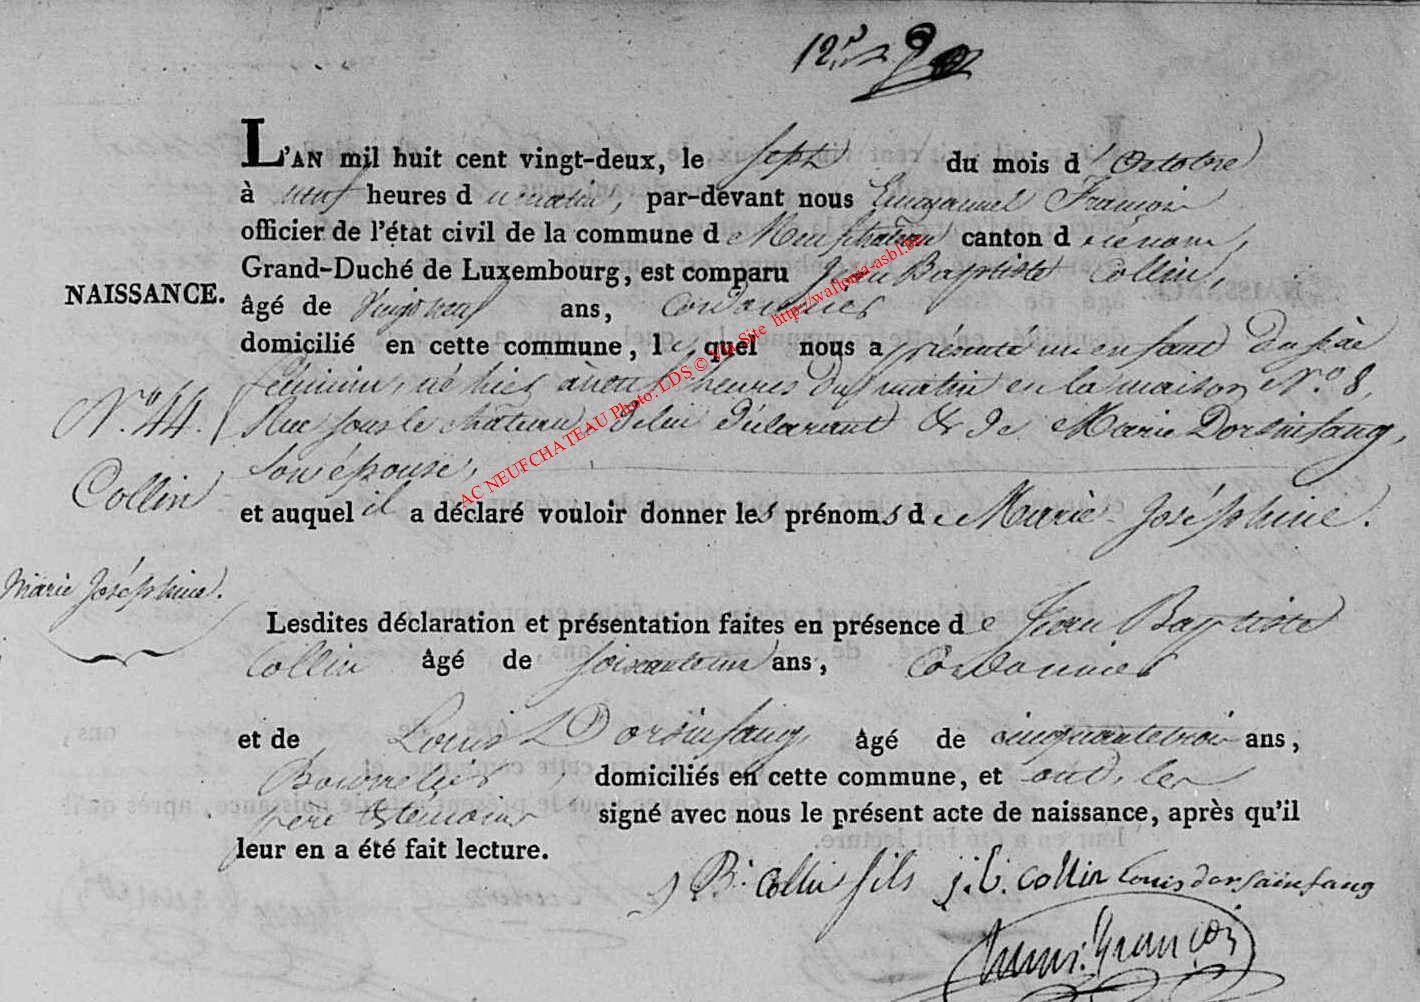 L'AN mil huit cent vingt-deux, le sept du mois d'Octobre
à neuf heures du matin, par-devant nous Emmanuel François
officier de l'état civil de la commune de Neufchateau canton d
Grand-Duché de Luxembourg, est comparu Jean Baptiste Collin,
NAISSANCE.
âgé de Vingt neuf ans, Cordonnier
domicilié en cette commune, lequel nous a présenté un enfant du sexe
féminin né hier à neuf heures du matin en la maison N.º 8,
N.º 44.
Rue sous le chateau, de lui déclarant & de Marie Dorsinfang,
son épouse,
Collin
et auquel il a déclaré vouloir donner les prénoms de Marie Joséphine.
Marie Joséphine.
Lesdites déclaration et présentation faites en présence de Jean Baptiste
Collin âgé de ans, Cordonnier
et de Louis Dorsinfang, âgé de cinquante trois ans,
Bourrelier, domiciliés en cette commune, et ont, les
père & témoins signé avec nous le présent acte de naissance, après qu'il
leur en a été fait lecture.
J B. Collin fils j. b. collin Louis dorsainfang
Emm. François
AC NEUFCHATEAU Photo: LDS © Via Site http://wallonia-asbl.be